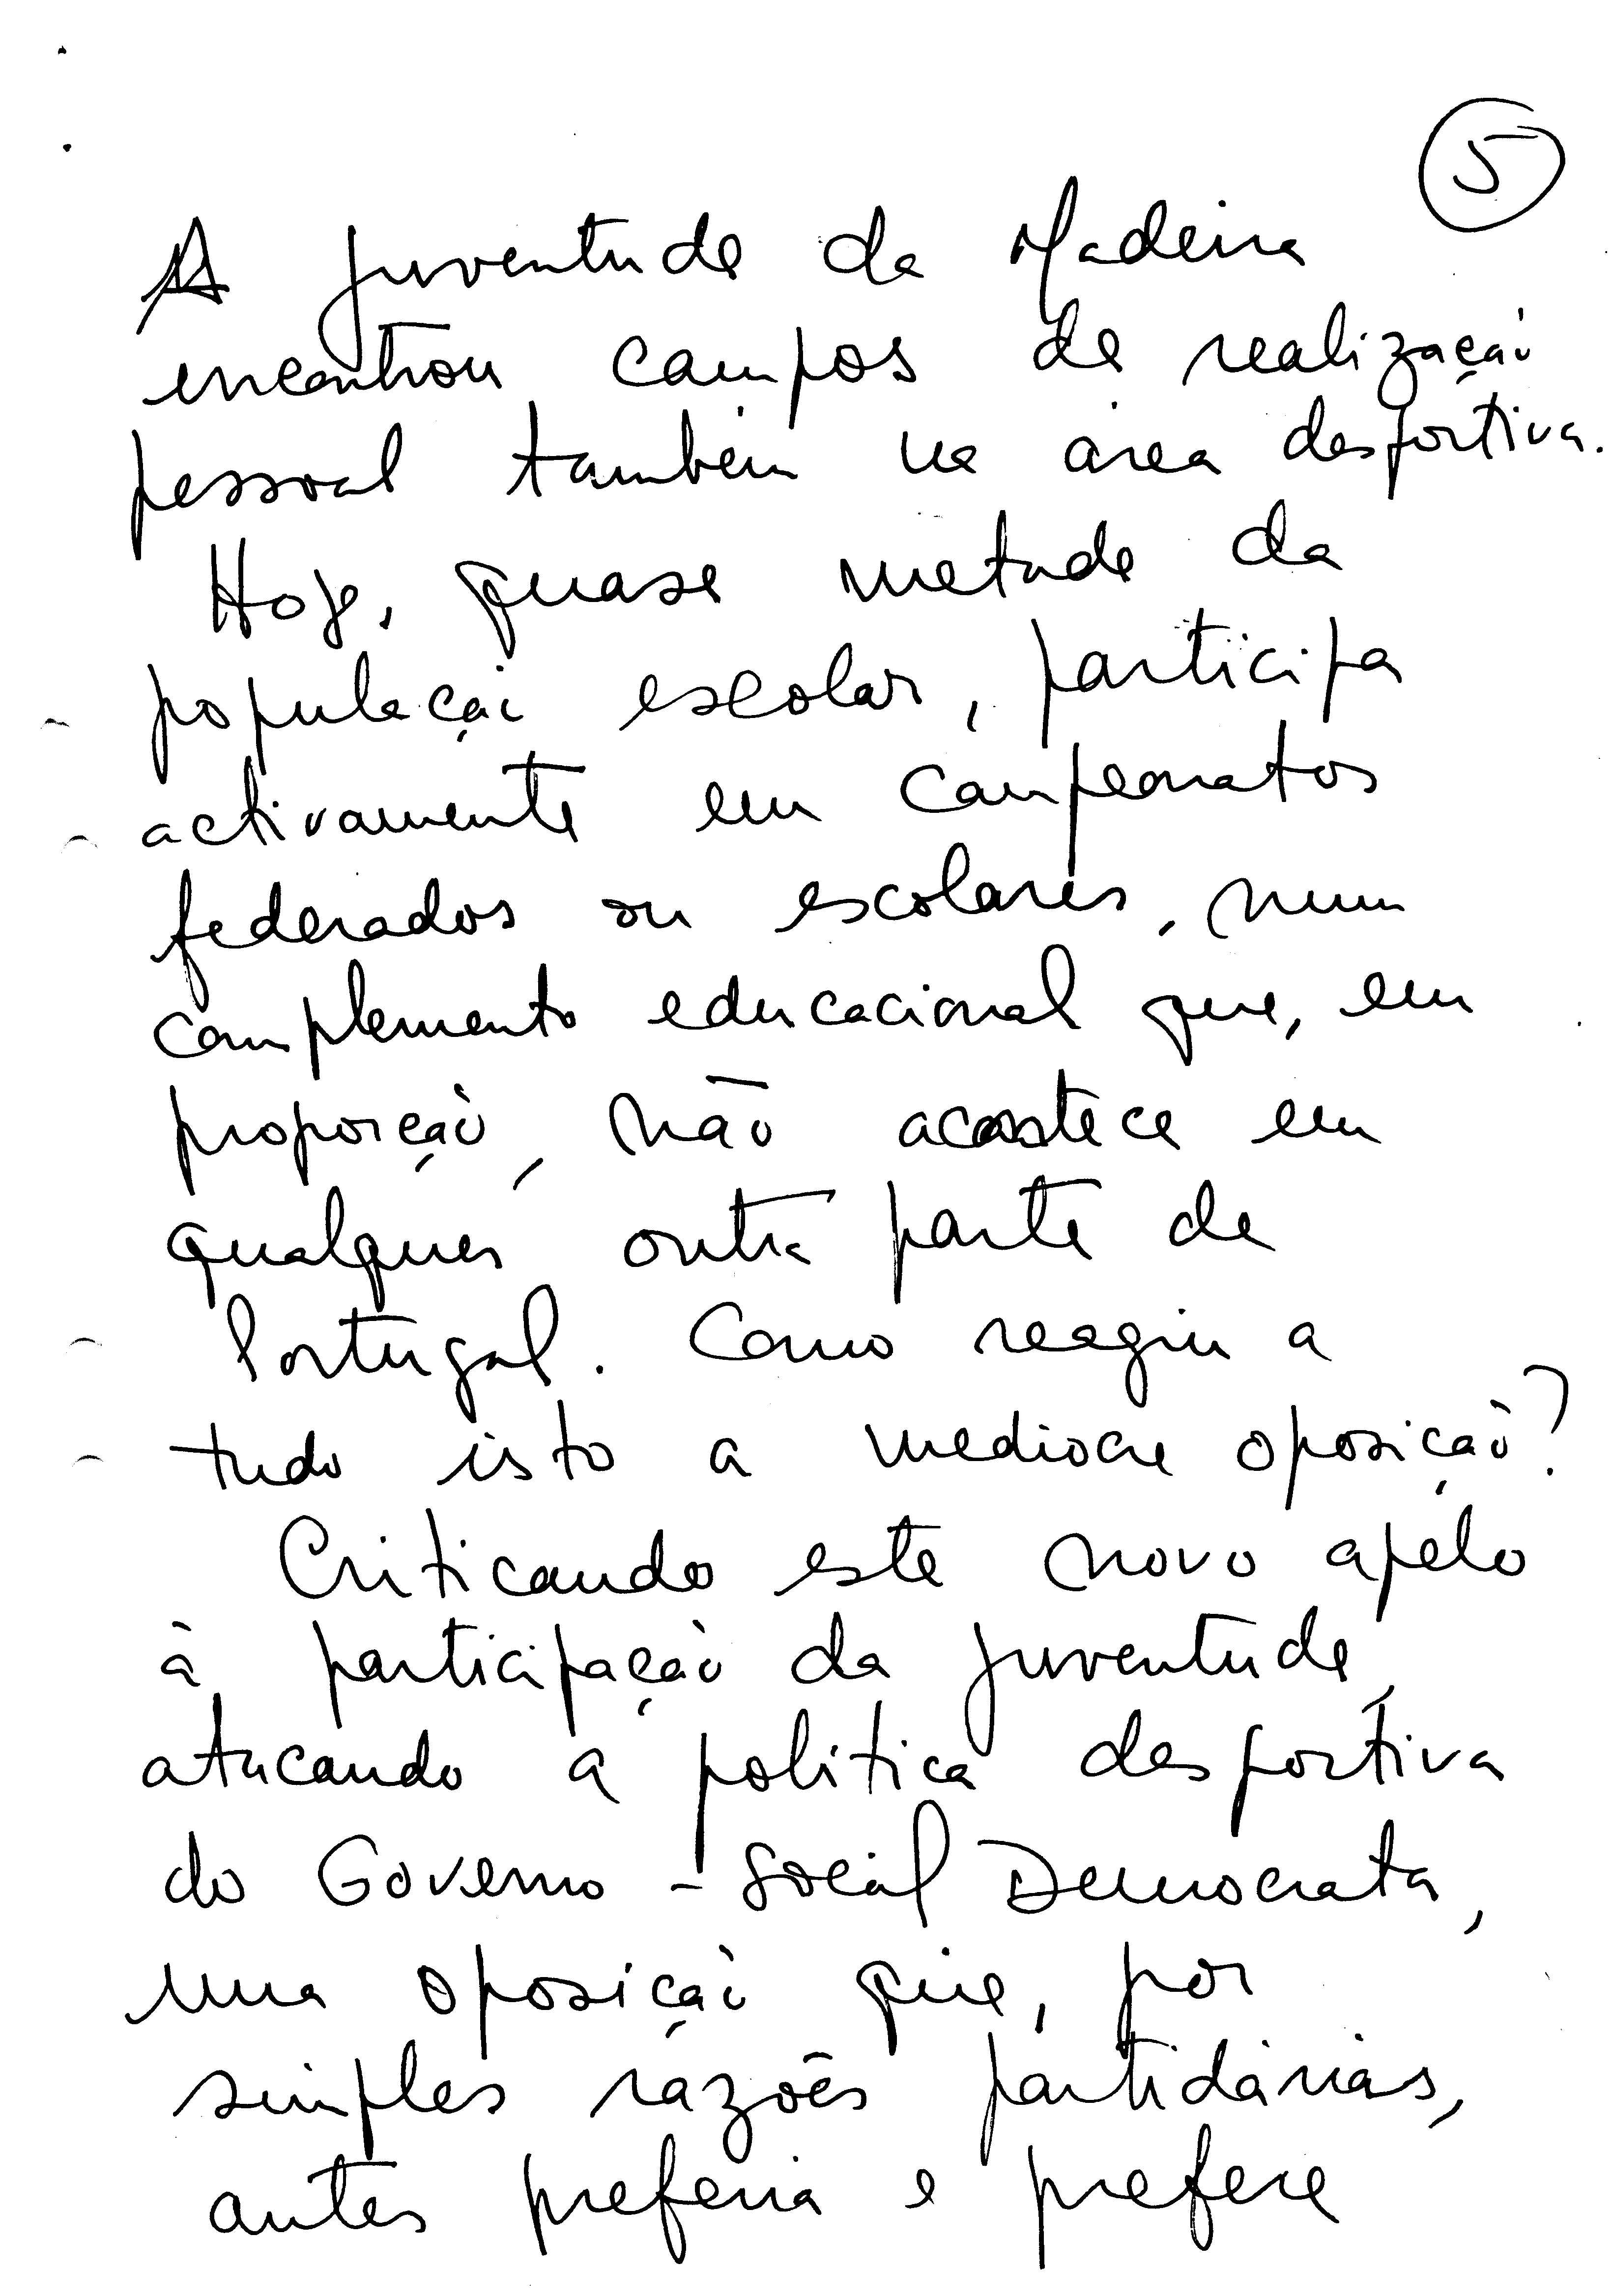 5
A juventude da Madeira
encontrou campos de realização
pessoal também na área desportiva.
Hoje, quase metade da
população escolar, participa
activamente em campeonatos
federados ou escolares, num
complemento educacional que, em
proporção, não acontece em
qualquer outra parte de
Portugal. Como reagiu a
tudo isto a mediocre oposição?
Criticando este novo apelo
à participação da juventude,
atacando a política desportiva
do Governo - Social Democrata,
uma oposição que, por
simples razões partidárias,
antes preferia e prefere